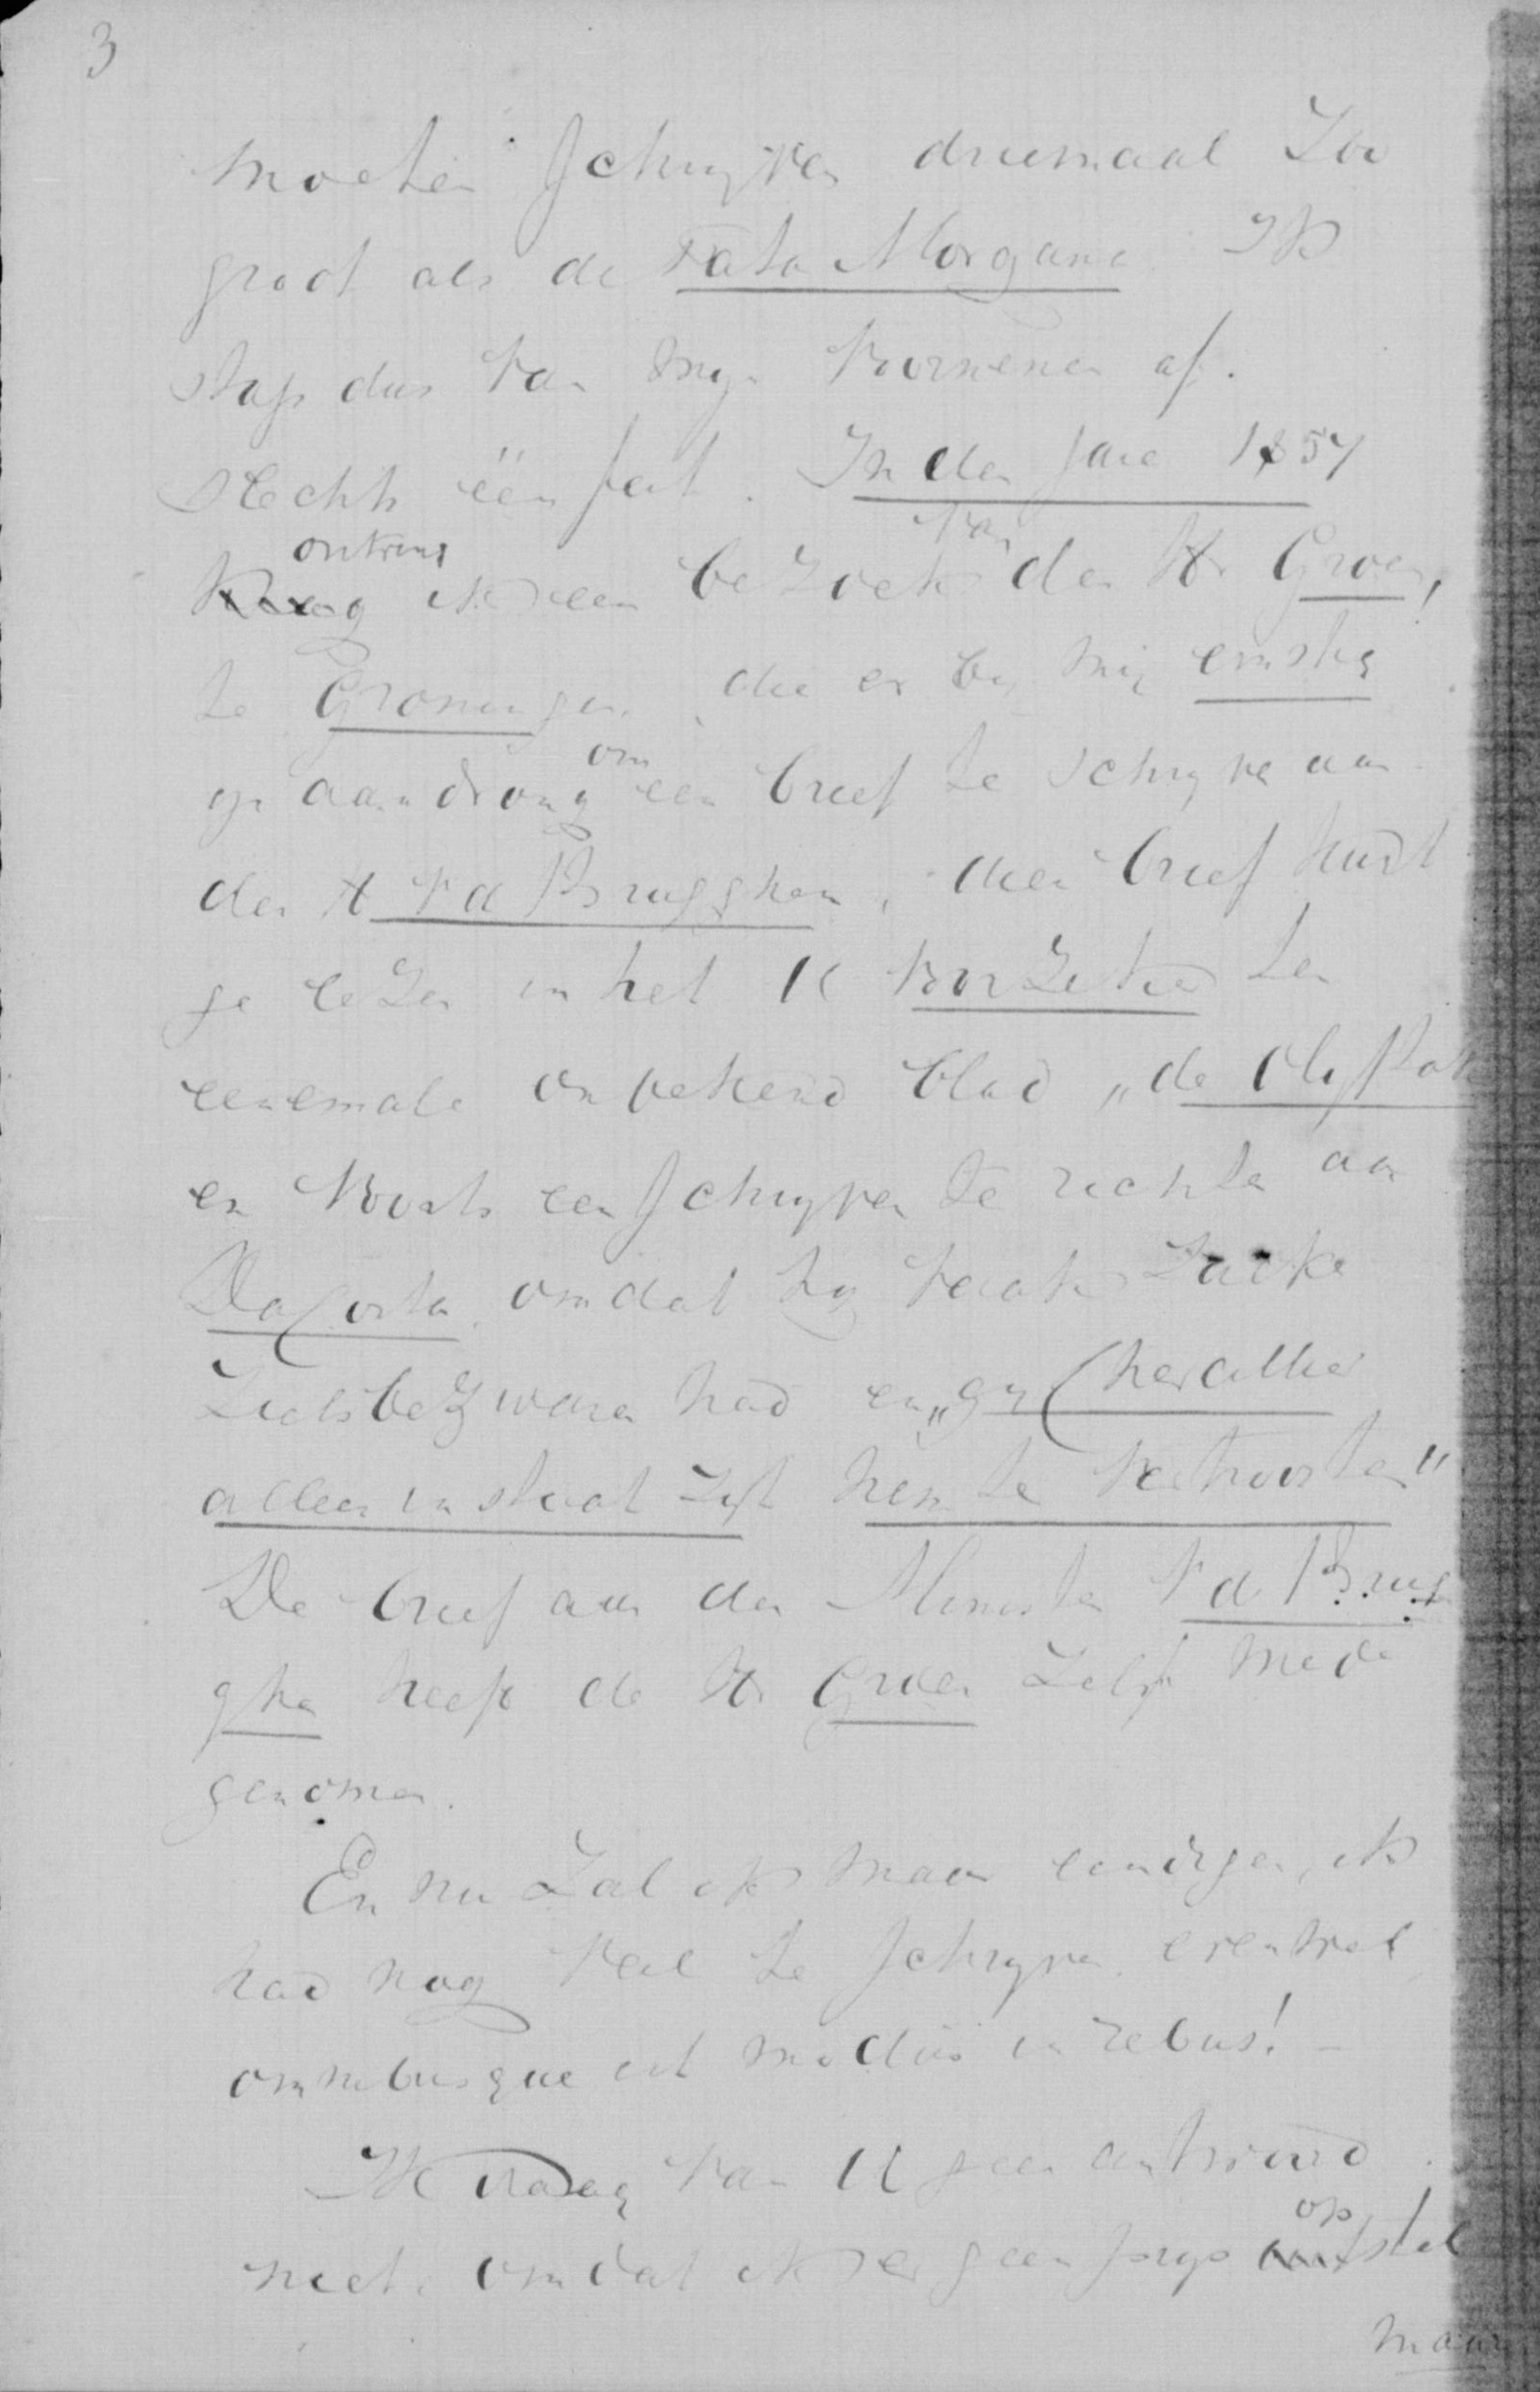 3
moeten schryven driemaal Zoo
groot als de Fata Morgana Ik
stap dus van myn voornemen af.
slechts één feit. In den jare 1857
ontving
ik een bezoek van den Hr Groen,
te Groningen, die er by mij ernstig
op aandrong om een brief te schryve aan
den H v d Brugghen, dien brief hadt
ge lezen in het U
eenemale onbekend blad „de Olyftak
en voorts een schryven te richten aan
DaCosta omdat hy vaak Zulke
Zielsbezwaren had en „gy Cherallier
alleen in staat zyt hem te vertroosten"
De brief aan den Minister v d Brug
ghen heeft de Hr Groen Zelf mede
genomen.
En nu Zal ik maar eindigen, ik
had nog veel te schryven evenwel
omnibusque est modus in rebus! -
Ik vraag van U geen antwoord
niet, omdat ik er geen prys op stel
maar